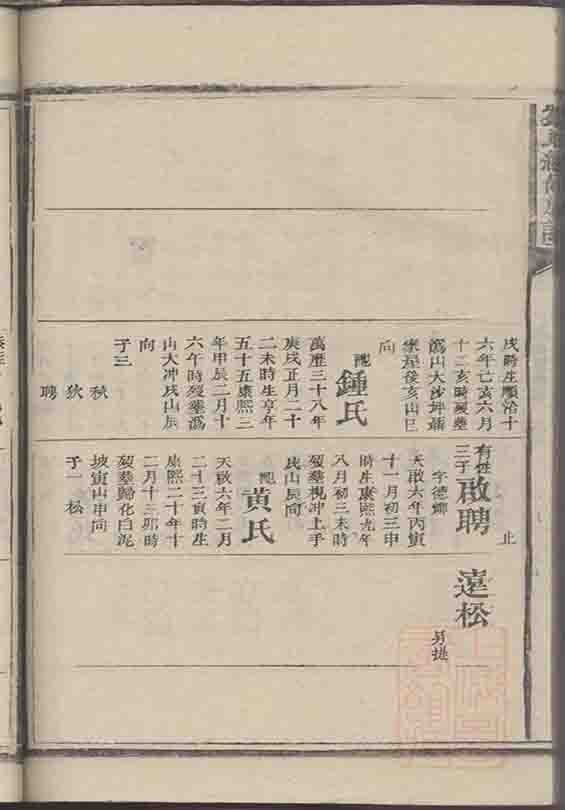 戌時生順治十
六年己亥六月
十二亥時歿塟
溈山大沙坪蕭
家屋後亥山巳
向
配鍾氏
萬歷三十八年
庚戌正月二十
二未時生享年
五十五康熙三
年甲辰二月十
六午時歿塟溈
山大冲戌山辰
向
子三
秋
狄
聘
止
有甡三子啟聘
字德
天啟六年丙寅
十一月初三申
時生康熙九年
八月初三未時
歿塟枧冲上手
戌山辰向
配黄氏
天啟六年二月
二十三寅時生
康熙二十年十
二月十三卯時
歿塟歸化白泥
坡寅山申向
子一松
遠松
另提